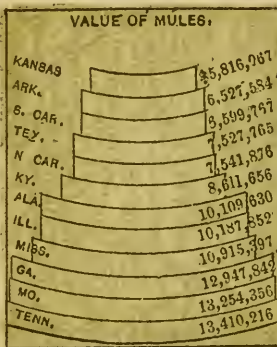 VALUE OF MULES.
KANSAS $5,816,967
ARK. 6,527,584
S. CAR. 6,599,767
TEX. 7,527,765
N CAR. 7,541,876
KY. 8,611,656
ALA. 10,109,630
ILL. 10,187,852
MISS. 10,915,397
GA. 12,947,842
MO. 13,254,356
TENN. 13,410,216